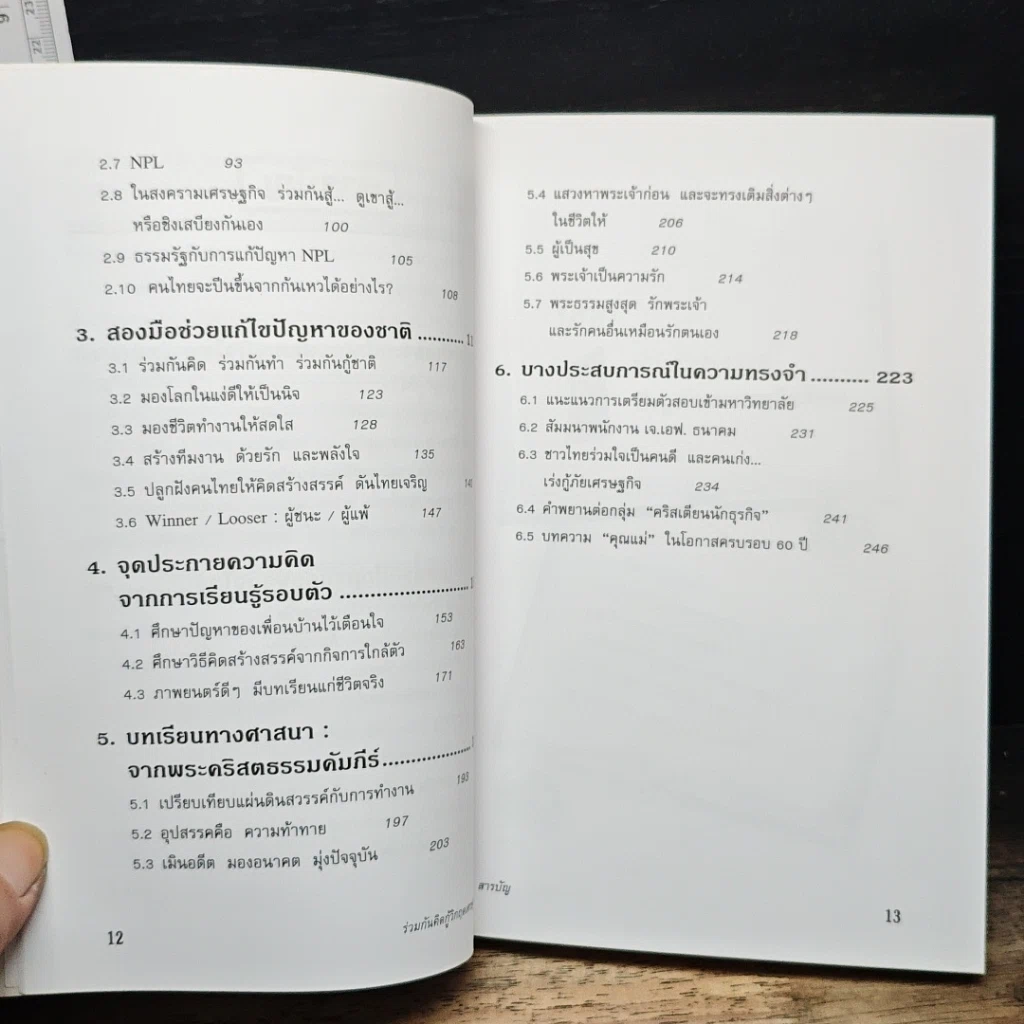 9
23
22
2.7 NPL 93
2.8 ในสงครามเศรษฐกิจ ร่วมกันสู้... ดูเขาสู้...
หรือชิงเสบียงกันเอง 100
2.9 ธรรมรัฐกับการแก้ปัญหา NPL 105
2.10 คนไทยจะปีนขึ้นจากก้นเหวได้อย่างไร? 108
3. สองมือช่วยแก้ไขปัญหาของชาติ ...........
3.1 ร่วมกันคิด ร่วมกันทำ ร่วมกันกู้ชาติ 117
3.2 มองโลกในแง่ดีให้เป็นนิจ 123
3.3 มองชีวิตทำงานให้สดใส 128
3.4 สร้างทีมงาน ด้วยรัก และพลังใจ 135
3.5 ปลูกฝังคนไทยให้คิดสร้างสรรค์ ดันไทยเจริญ
3.6 Winner / Looser : ผู้ชนะ / ผู้แพ้ 147
4. จุดประกายความคิด
จากการเรียนรู้รอบตัว .........................
4.1 ศึกษาปัญหาของเพื่อนบ้านไว้เตือนใจ 153
4.2 ศึกษาวิธีคิดสร้างสรรค์จากกิจการใกล้ตัว 163
4.3 ภาพยนตร์ดีๆ มีบทเรียนแก่ชีวิตจริง 171
5. บทเรียนทางศาสนา :
จากพระคริสตธรรมคัมภีร์.................
5.1 เปรียบเทียบแผ่นดินสวรรค์กับการทำงาน 193
5.2 อุปสรรคคือ ความท้าทาย 197
5.3 เมินอดีต มองอนาคต มุ่งปัจจุบัน 203
12
5.4 แสวงหาพระเจ้าก่อน และจะทรงเติมสิ่งต่างๆ
ในชีวิตให้ 206
5.5 ผู้เป็นสุข 210
5.6 พระเจ้าเป็นความรัก 214
5.7 พระธรรมสูงสุด รักพระเจ้า
และรักคนอื่นเหมือนรักตนเอง 218
6. บางประสบการณ์ในความทรงจำ .......... 223
6.1 แนะแนวการเตรียมตัวสอบเข้ามหาวิทยาลัย 225
6.2 สัมมนาพนักงาน เจ.เอฟ. ธนาคม 231
6.3 ชาวไทยร่วมใจเป็นคนดี และคนเก่ง...
เร่งกู้ภัยเศรษฐกิจ 234
6.4 คำพยานต่อกลุ่ม “คริสเตียนนักธุรกิจ” 241
6.5 บทความ “คุณแม่” ในโอกาสครบรอบ 60 ปี 246
สารบัญ
13